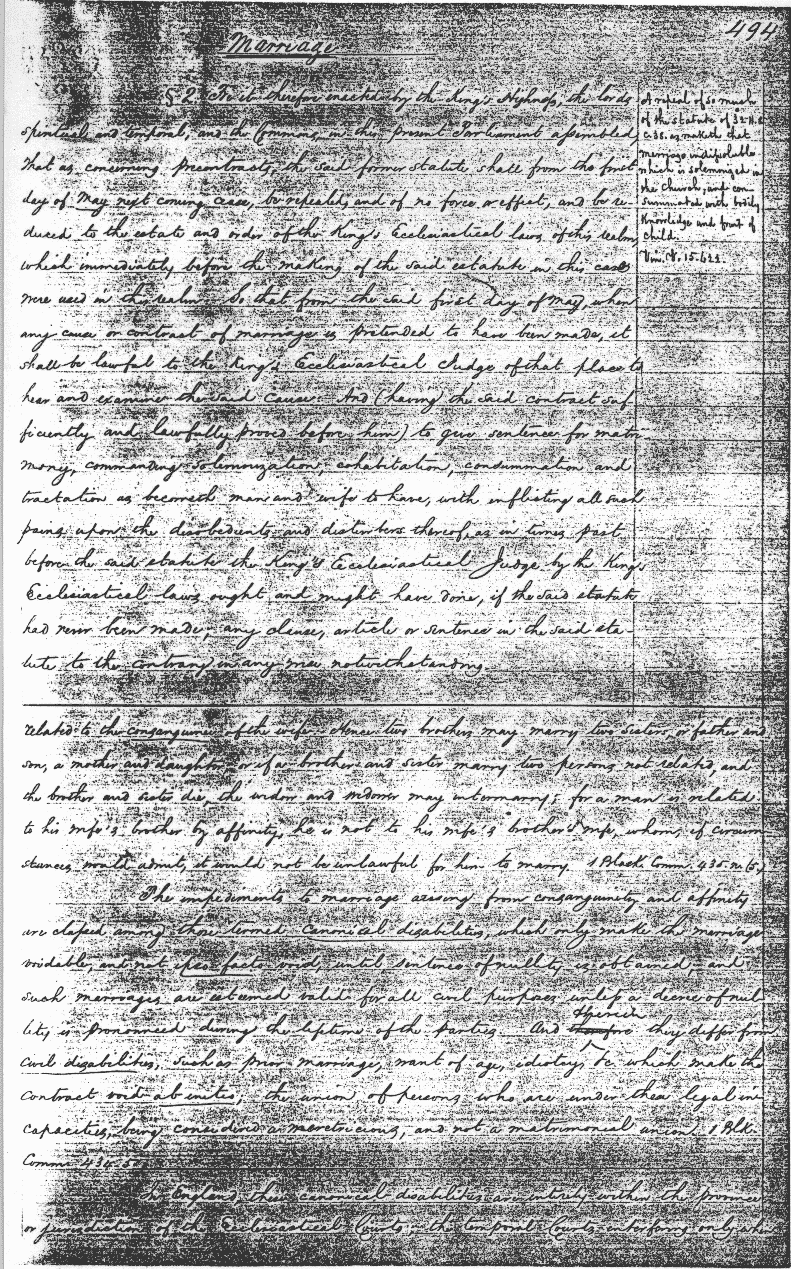 494
Marriage
§ 2. Be it therefore enacted by the King's Highness, the lords
spiritual and temporal, and the Commons, in this present Parliament assembled,
That as concerning precontracts, the said former statute shall from the first
day of May next coming cease, be repealed, and of no force or effect, and be re-
duced to the estate and order of the King's Ecclesiastical laws of this realm,
which immediately before the making of the said estatute in this case
were used in this realm: So that from the said first day of May, when
any cause or contract of marriage is pretended to have been made, it
shall be lawful to the King's Ecclesiastical Judge of that place to
hear and examine the said cause: And (having the said contract suf-
ficiently and lawfully proved before him) to give sentence for matri-
mony, commanding solemnization, cohabitation, consummation and
tractation as becometh man and wife to have, with inflicting all such
pains upon the disobedients and disturbers thereof, as in times past
before the said statute the King's Ecclesiastical Judge by the King's
Ecclesiastical laws ought and might have done, if the said statute
had never been made; any clause, article or sentence in the said sta-
tute to the contrary in any wise notwithstanding.
A repeal of so much
of the statute of 32 H. 8
c. 38. as maketh that
marriage indissoluble
which is solemnized in
the church, and con-
summated with bodily
knowledge and fruit of
child.
Vin. V. 15. 623.
related to the consanguinei of the wife. Hence two brothers may marry two sisters, or father and
son, a mother and daughter, or if a brother and sister marry two persons not related, and
the brother and sister die, the widow and widower may intermarry; for a man is related
to his wife's brother by affinity, he is not to his wife's brother's wife, whom, if circum-
stances would admit, it would not be unlawful for him to marry. 1 Black Comm. 435. n. (5.)
The impediments to marriage arising from consanguinity and affinity
are classed among those termed canonical disabilities, which only make the marriage
voidable, and not ipso facto void, until sentence of nullity is obtained; and
such marriages are esteemed valid for all civil purposes unless a decree of nul-
lity is pronounced during the lifetime of the parties. And therein they differ from
civil disabilities, such as prior marriage, want of age, idiotcy, &c. which make the
contract void ab initio, the union of persons who are under these legal in-
capacities, being considered a meretricious, and not a matrimonial union. 1 Blk.
Comm. 434.
In England, these canonical disabilities are entirely within the province
or jurisdiction of the Ecclesiastical Courts; the temporal Courts interfering only when